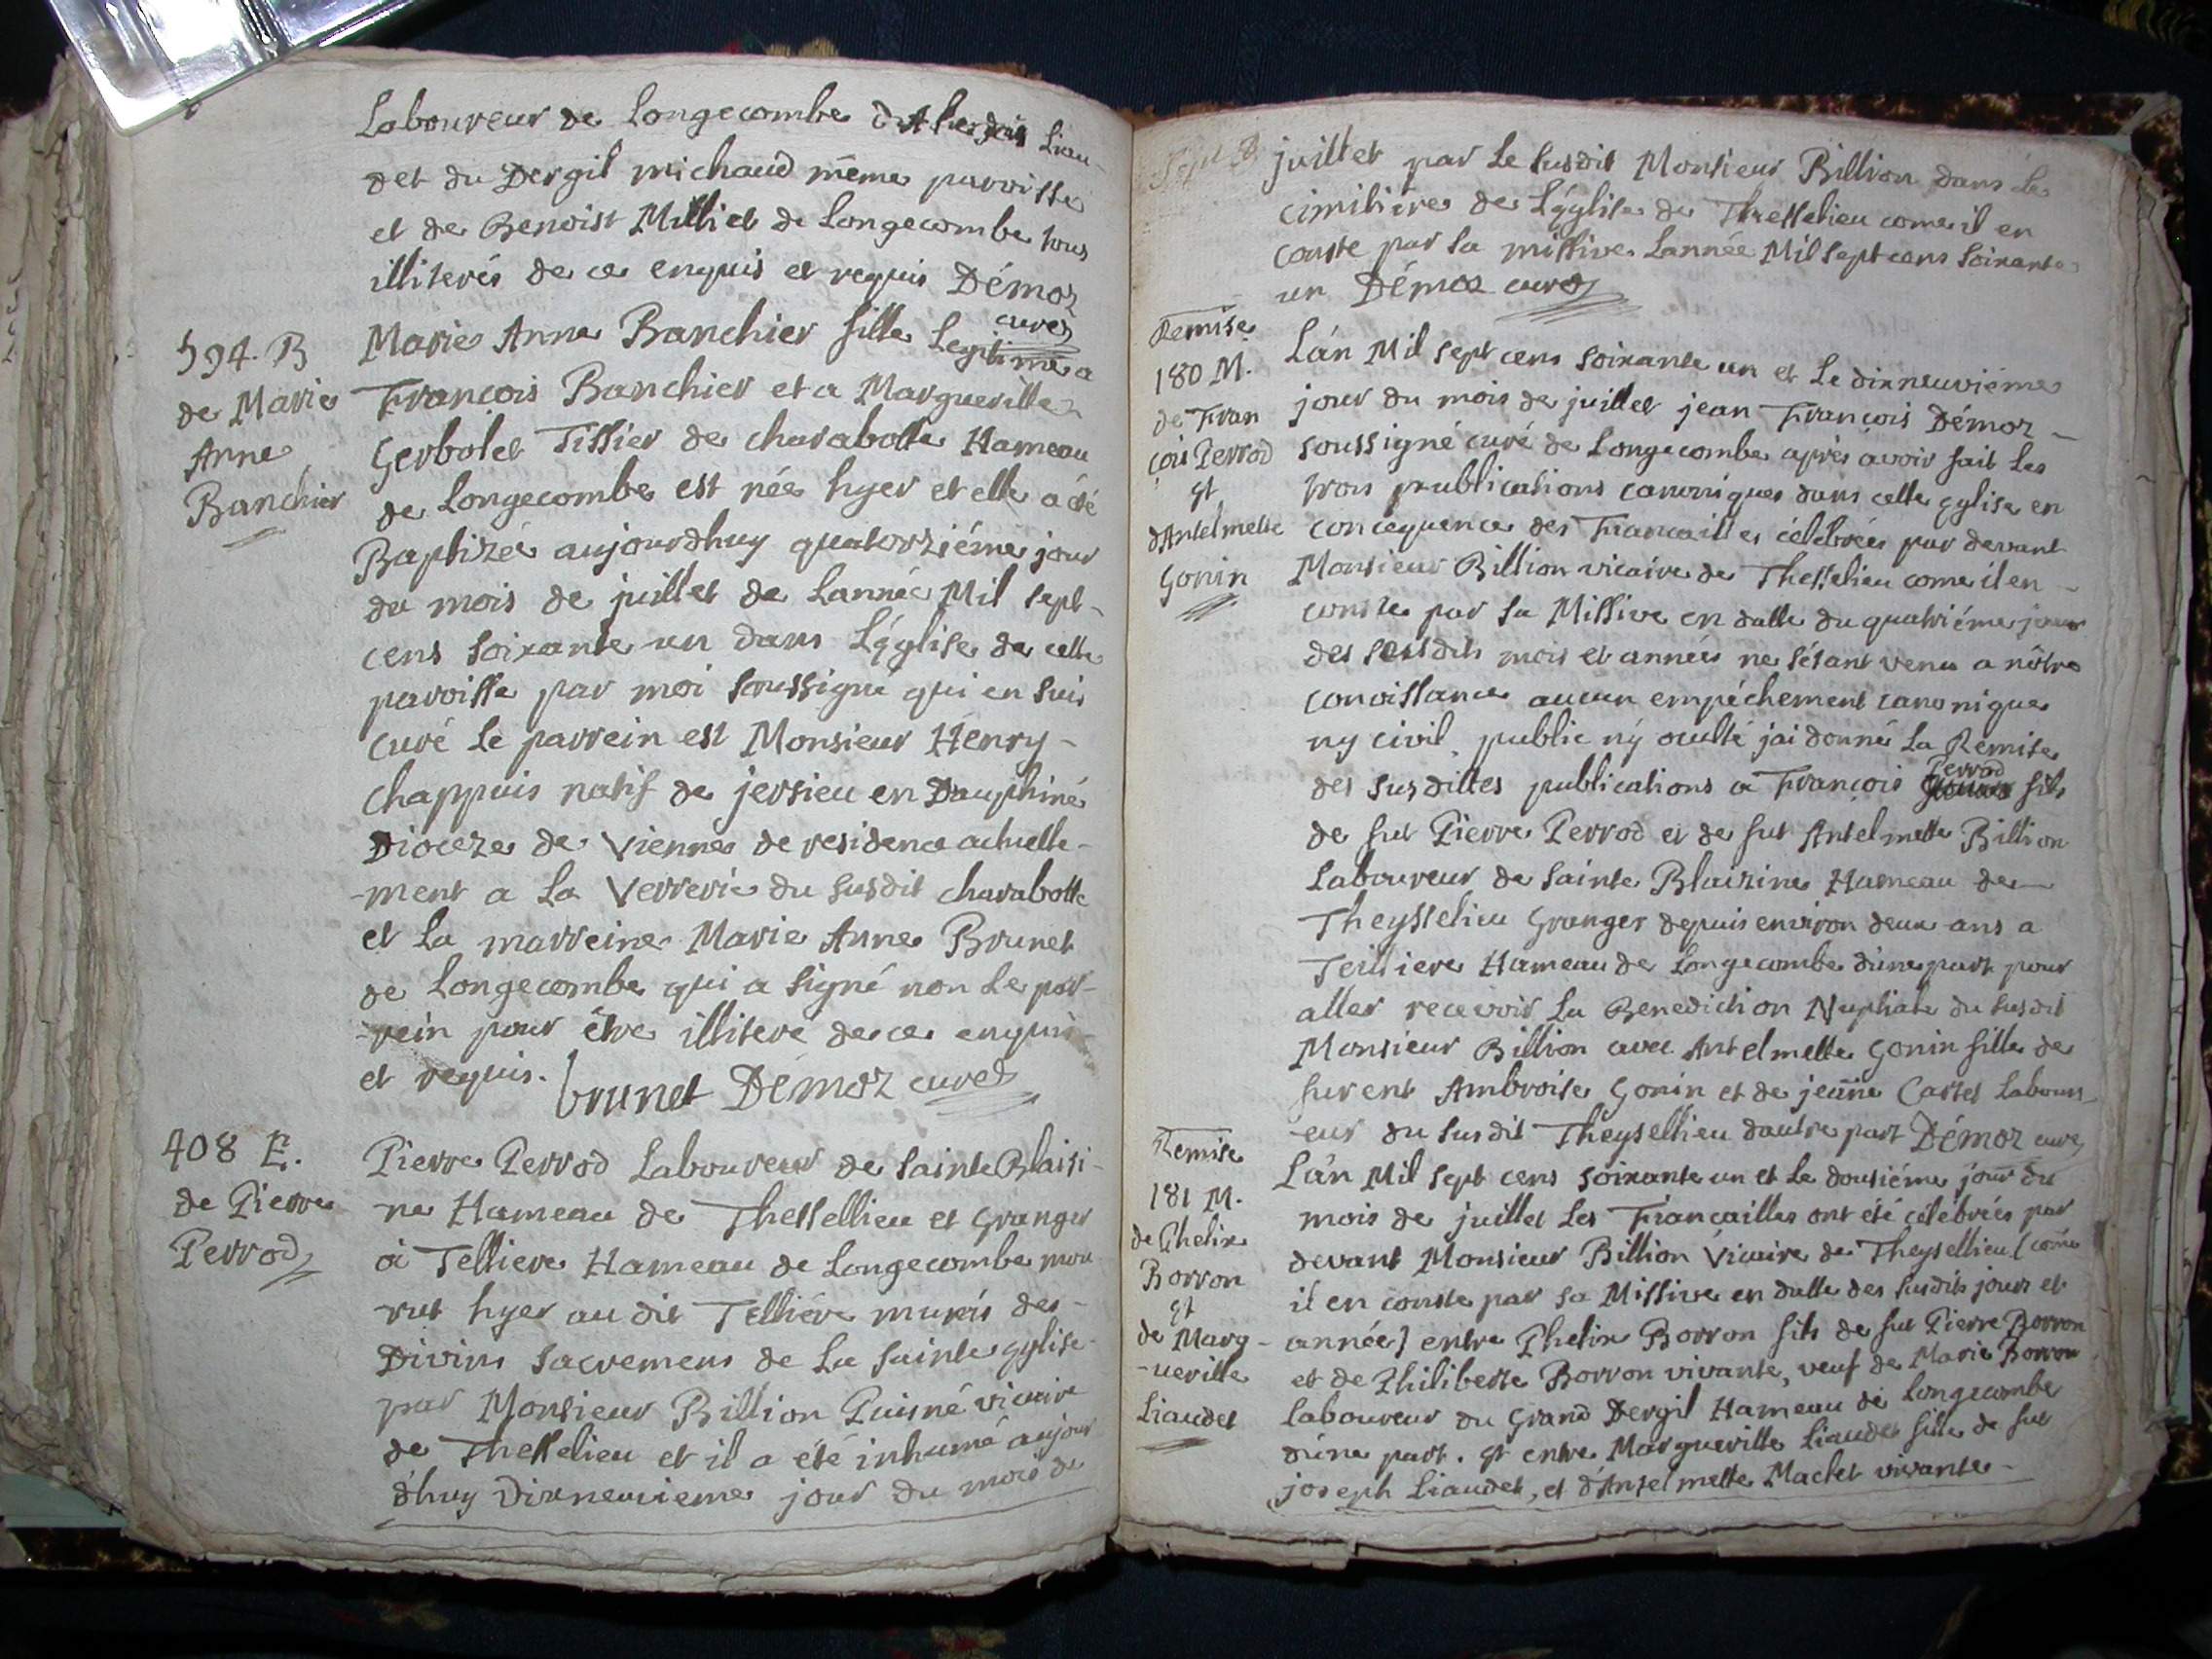 Laboureur de Longecombe Liau-
det du Dergil michaud même paroisse
et de Benoist Milliet de Longecombe tous
illiterés de ce enquis et requis Démoz
curé
594. B
de Marie
Anne
Banchier
Marie Anne Banchier fille Legitime a
François Banchier et a Margueritte
Gerbolet Tissier de charabotte Hameau
de Longecombe est née hyer et elle a été
Baptizée aujourdhuy quatorziéme jour
du mois de juillet de Lannée Mil sept-
cens soixante un dans L'église de cette
paroisse par moi soussigné qui en suis
curé Le parrein est Monsieur Hénry-
chappuis natif de jersieu en Dauphiné
Dioceze de Vienne de residence actuelle-
-ment a La Verrerie du susdit charabotte
et La marreine Marie Anne Brunet
de Longecombe qui a signé non Le par-
-rein pour être illiteré de ce enquis
et requis. brunet Démoz curé
408 E.
de Pierre
Perrod
Pierre Perrod Laboureur de sainte Blaisi-
ne Hameau de Thessellieu et Granger
a Telliere Hameau de Longecombe mou-
rut hyer au dit Telliére munis des-
Divins sacremens de La sainte église-
par Monsieur Billion Puisné vicaire
de Thesselieu et il a été inhumé aujour
d'huy Dixneuvieme jour du mois de
juillet par Le susdit Monsieur Billion dans Le
cimitiére de L'église de Thesselieu come il en
conste par sa missive Lannée Mil sept cens soixante
un Démoz curé
Remise
180 M.
de Fran
çois Perrod
et
d'Antelmette
Gonin
L'an Mil sept cens soixante un et Le dixneuviéme
jour du mois de juillet jean François Démoz
soussigné curé de Longecombe aprés avoir fait Les
trois publications canoniques dans cette église en
concequence des Fiancailles célébrées par devant
Monsieur Billion vicaire de Thesselieu come il en -
conste par sa Missive en datte du quatriéme jour
des susdits mois et années ne s'étant venu a nôtre
conoissance aucun empéchement canonique
ny civil, public ny oculté jai donné La Remise
des susdittes publications a François Perrod fils
de fut Pierre Perrod et de fut Antelmette Billion
Laboureur de sainte Blaizine Hameau de
Theysselieu Granger depuis environ deux ans a
Teilliere Hameau de Longecombe dúne part pour
aller recevoir La Benediction Nuptiale du susdit
Monsieur Billion avec Antelmette Gonin fille de
furent Ambroise Gonin et de jeanne Cartet Labour-
-eur du susdit Theysellieu dautre part Démoz curé
Remise
181 M.
de Phelix
Borron
et
de Marg-
-ueritte
Liaudet
L'an Mil sept cens soixante un et Le dousiéme jour du
mois de juillet Les Fiancailles ont été célébrées par
devant Monsieur Billion Vicaire de Theysellieu (come
il en conste par sa Missive en datte des susdits jours et
année) entre Phelix Borron fils de fut Pierre Borron
et de Philiberte Borron vivante, veuf de Marie Borron
Laboureur du Grand Dergil Hameau de Longecombe
dúne part. et entre Margueritte Liaudet fille de fut
joseph Liaudet, et d'Antelmette Machet vivante -